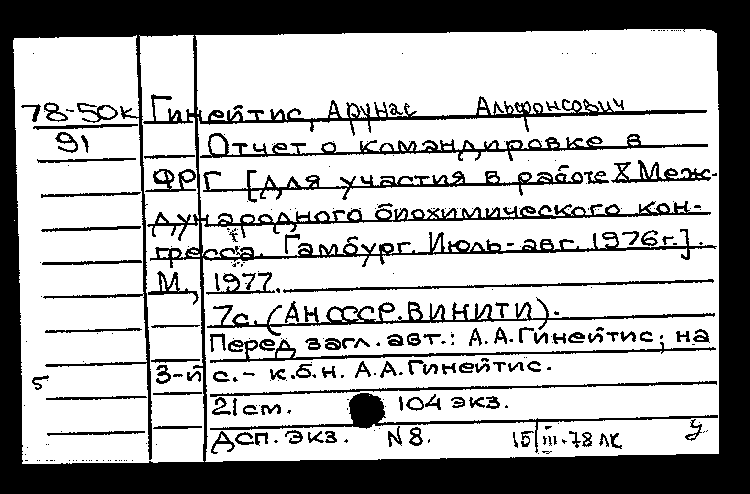 78-50к Гинейтис, Арунас Альфонсович
91 Отчет о командировке в
ФРГ [для участия в работе X Меж-
дународного биохимического кон-
гресса. Гамбург. Июль-авг. 1976г.].
М., 1977.
7с. (АН СССР. ВИНИТИ).
Перед загл. авт.: А.А.Гинейтис; на
3-й с.- к.б.н. А.А.Гинейтис.
5
21см. 104 экз.
ДСП. экз. N8. 15/III-78 ЛК У